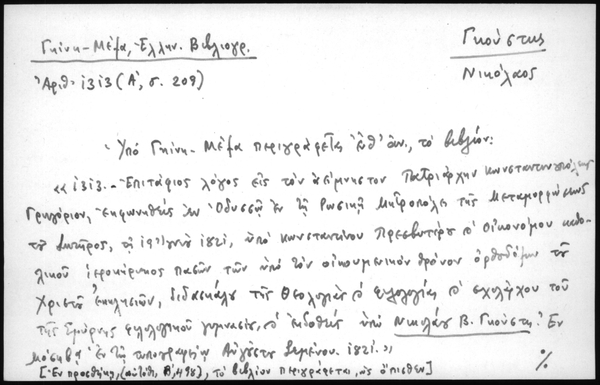 Γκίνη-Μέξα, Ἑλλην. Βιβλιογρ.
Γκούστης
Ἀριθ. 1313 (Α', σ. 209)
Νικόλαος
Ὑπό Γκίνη-Μέξα περιγράφεται ἐνθ' ἀν., τό βιβλίον:
«1313.- Ἐπιτάφιος λόγος εἰς τόν ἀείμνηστον Πατριάρχην Κωνσταντινουπόλεως
Γρηγόριον, ἐκφωνηθείς ἐν Ὀδησσῷ ἐν τῇ Ρωσικῇ Μητροπόλει τῆς Μεταμορφώσεως
τοῦ Σωτῆρος, τῇ 19 Ἰουνίου 1821, ὑπό Κωνσταντίνου Πρεσβυτέρου & Οἰκονόμου καθο-
λικοῦ ἱεροκήρυκος πασῶν τῶν ὑπό τόν οἰκουμενικόν θρόνον ὀρθοδόξων τοῦ
Χριστοῦ Ἐκκλησιῶν, διδασκάλου τῆς Θεολογίας & φιλολογίας & σχολάρχου τοῦ
τῆς Σμύρνης φιλολογικοῦ γυμνασίου, & ἐκδοθείς ὑπό Νικολάου Β. Γκούστη. Ἐν
Μόσχβᾳ Ἐν τῇ τυπογραφίᾳ Αὐγούστου Σεμένου. 1821.»
[Ἐν προσθήκῃ, (αὐτόθι, Β', 498), τό βιβλίον περιγράφεται, ὡς ὄπισθεν]
./.